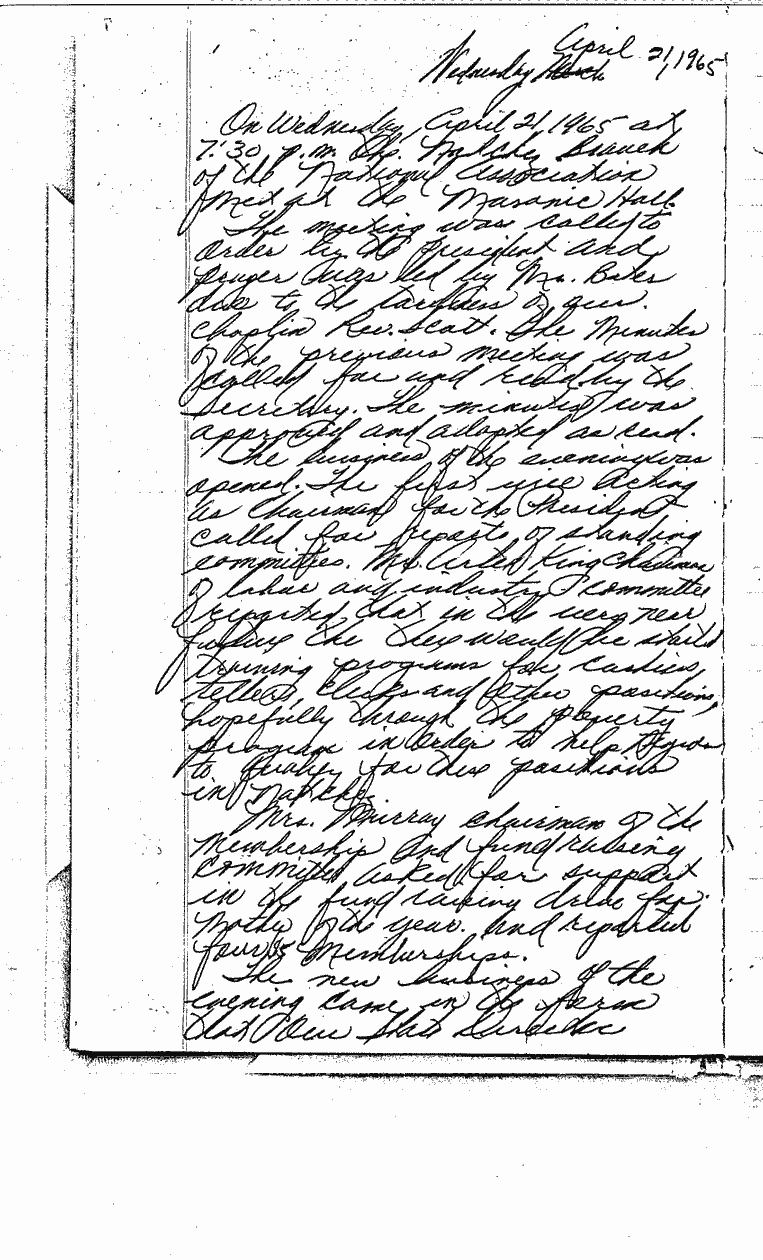 April
Wednesday March 21, 1965
On Wednesday, April 21 1965 at
7:30 p.m. the Natchez Branch
of the National Association
met at the Masonic Hall.
The meeting was called to
order by the president and
prayer was led by Mr. Bates
due to the tardiness of our
chaplin Rev. Scott. The Minutes
of the previous meeting was
called for and read by the
Secretary. The minutes was
approved and adopted as read.
The business of the evening was
opened. The first vice acting
as Chairman for the President
called for reports of standing
committees. Mr. King Chairman
of labor and industry committee
reported that in the very near
future the there would be started
training programs for cashiers,
tellers, Clerks and other positions,
hopefully through the poverty
program in order to help Negroes
to qualify for these positions
in Natchez.
Mrs. Murray chairman of the
Membership and fund raising
committee asked for support
in the fund raising drive for
Mother of the year. and reported
four Memberships.
The new business of the
evening came in the form
that Our State